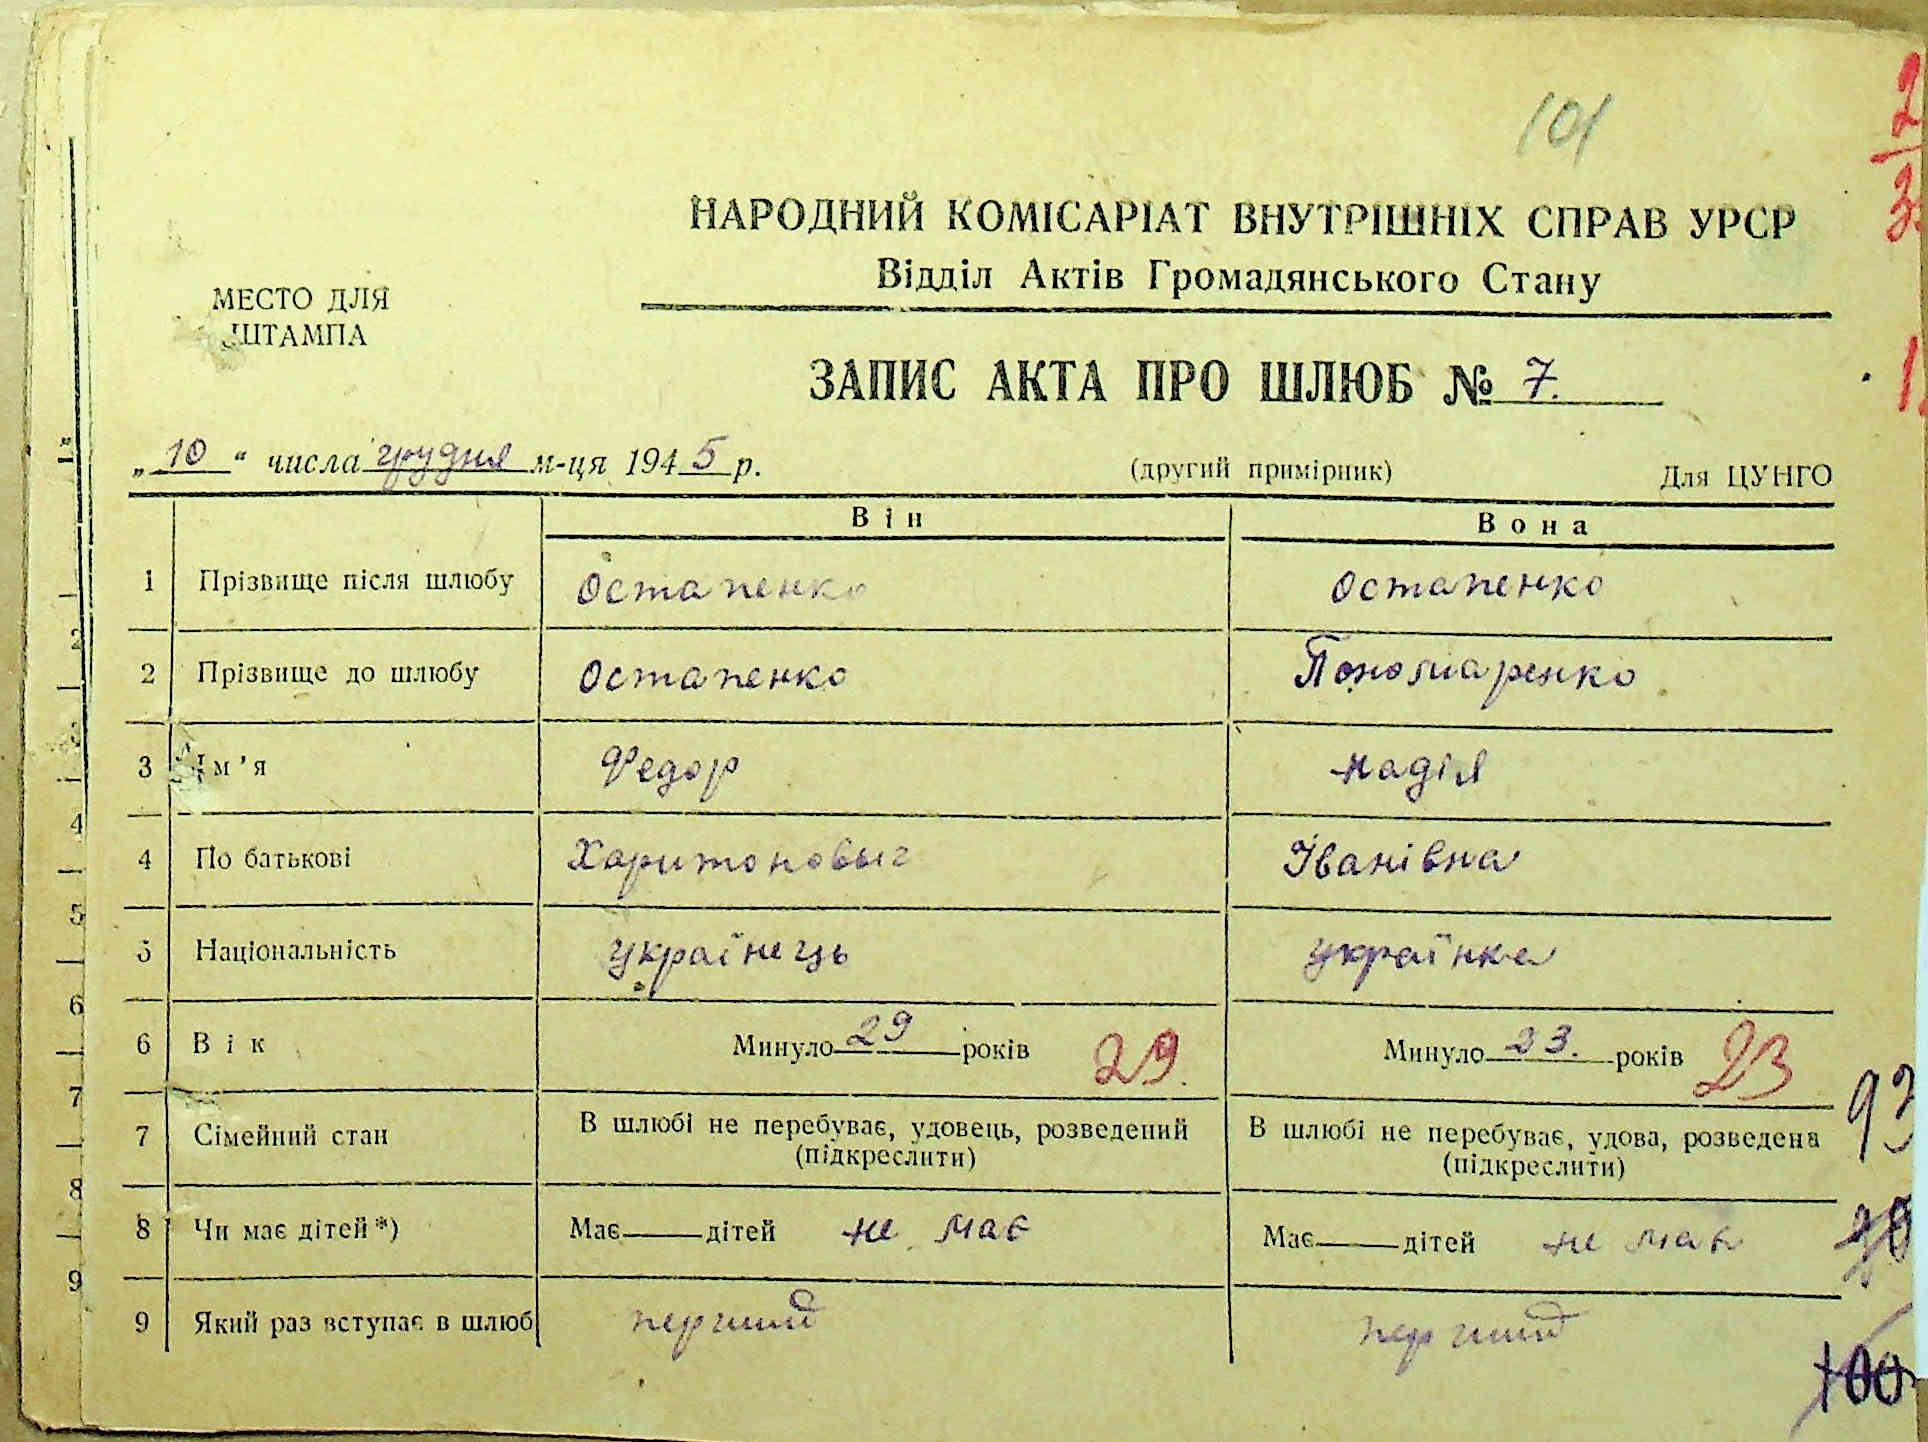 101
2
3
НАРОДНИЙ КОМІСАРІАТ ВНУТРІШНІХ СПРАВ УРСР
Відділ Актів Громадянського Стану
МЕСТО ДЛЯ
ШТАМПА
ЗАПИС АКТА ПРО ШЛЮБ № 7.
1
„ 10 “ числа грудня м-ця 194 5 р. (другий примірник) Для ЦУНГО
Він Вона
1 Прізвище після шлюбу Остапенко Остапенко
2 Прізвище до шлюбу Остапенко Пономаренко
3 Ім'я Федор Надія
4 По батькові Харитоновыч Іванівна
5 Національність українець українка
6 Вік Минуло 29 років 29. Минуло 23. років 23
7 Сімейний стан В шлюбі не перебуває, удовець, розведений (підкреслити) В шлюбі не перебуває, удова, розведена (підкреслити)
8 Чи має дітей*) Має дітей не має Має дітей не має
9 Який раз вступає в шлюб перший перший
100
2
3
4
5
6
7
8
9